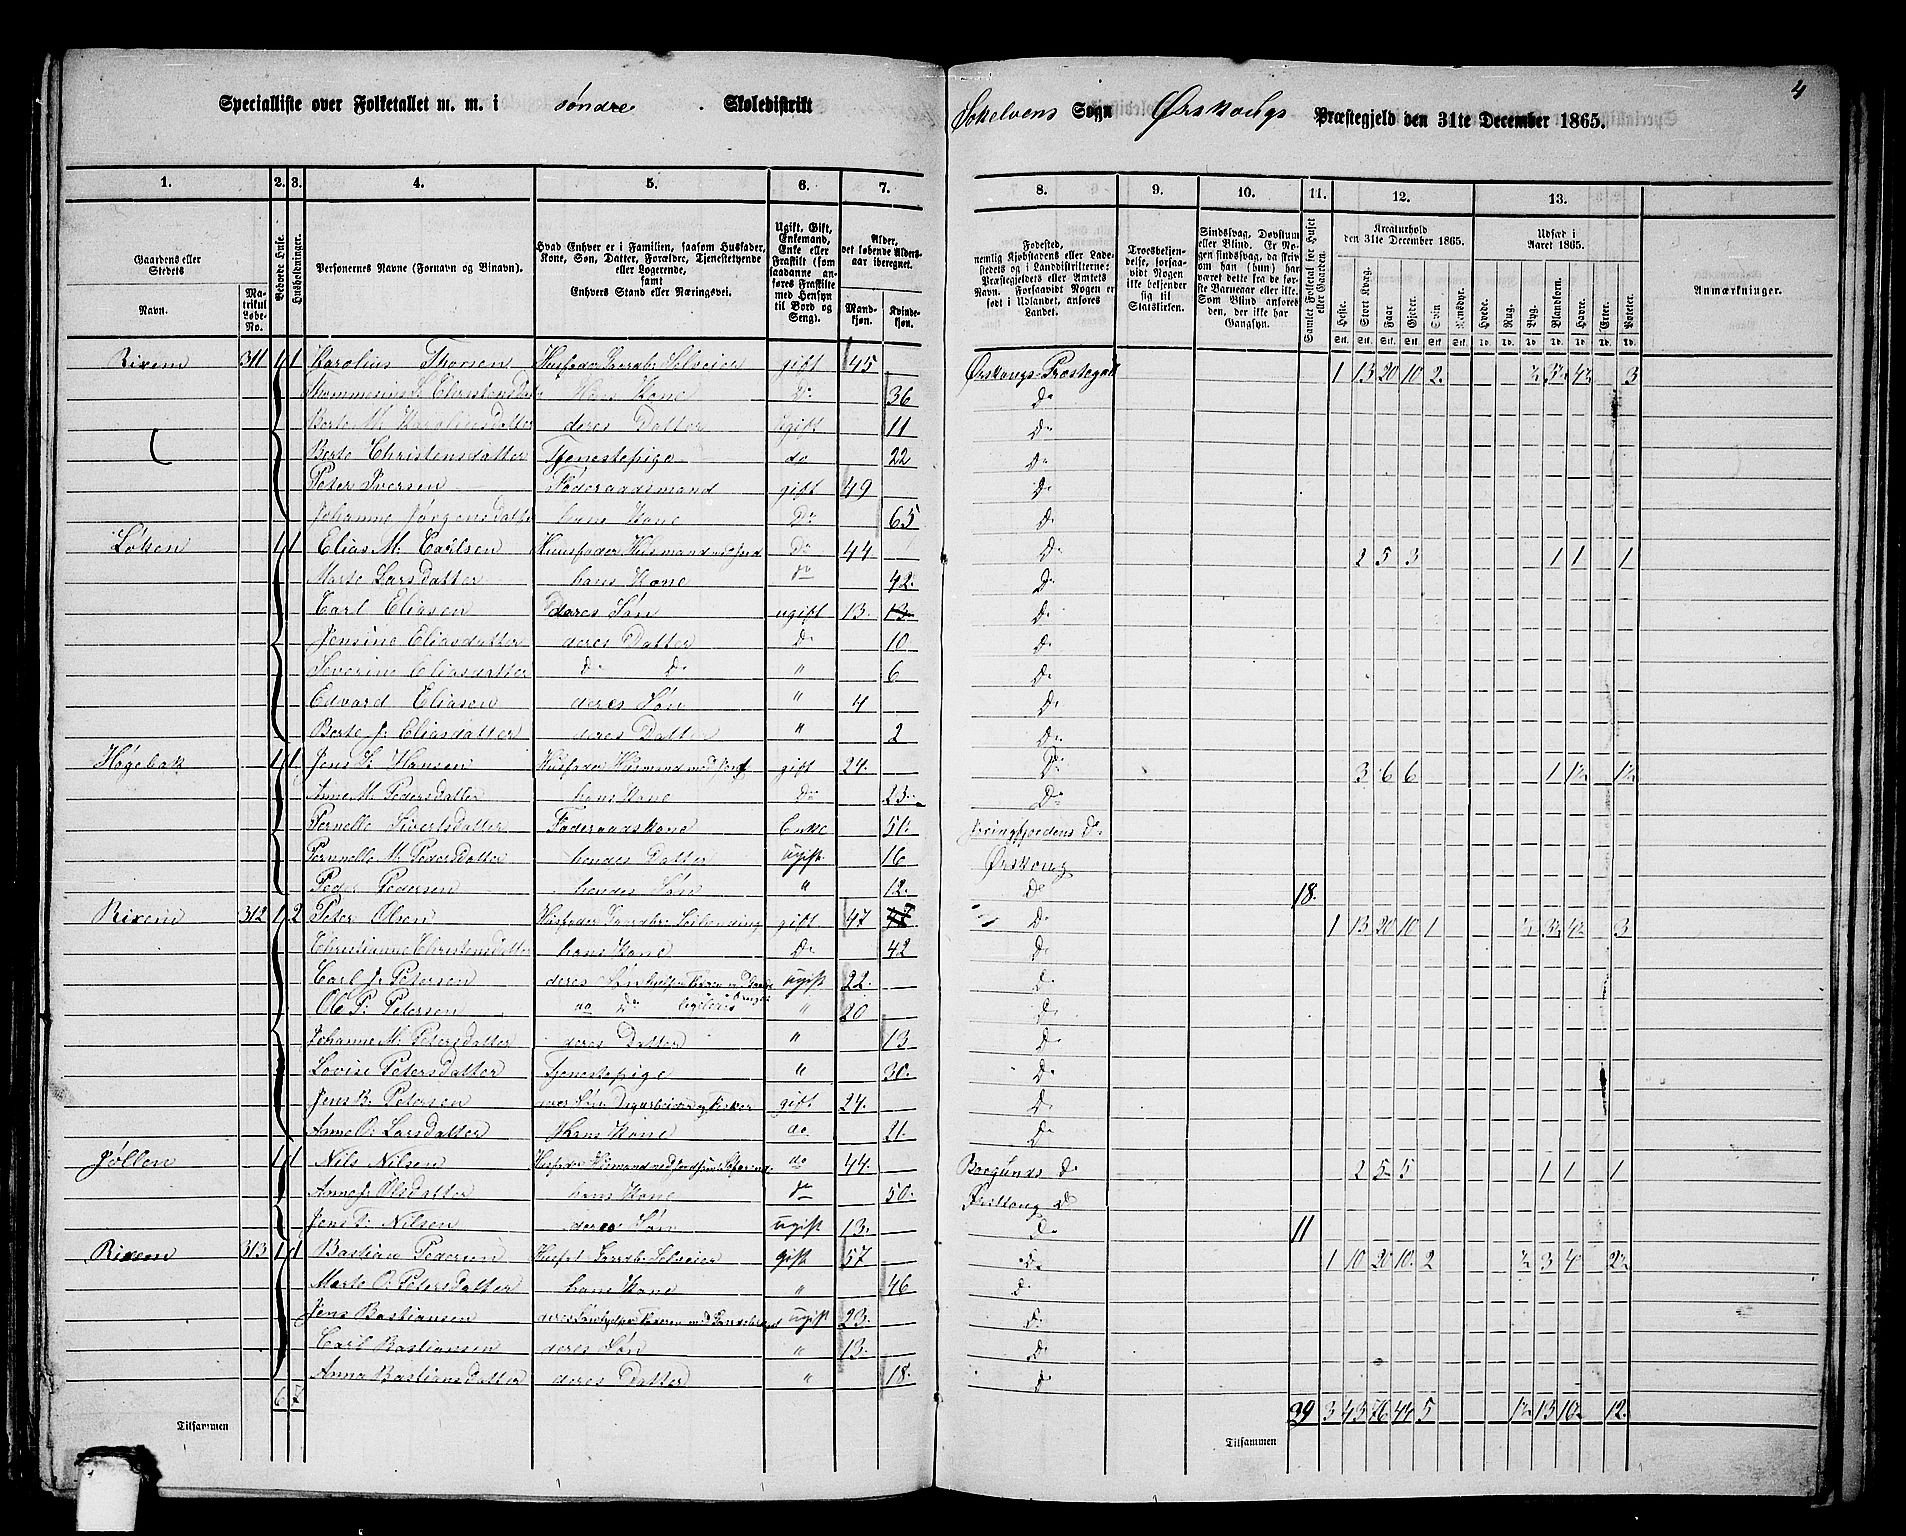 4
Specialliste over Folketallet m. m. i søndre Skoledistrikt
Sogn Ørskougs Præstegjeld den 31te December 1865.
1. 2. 3. 4. 5. 6. 7.
8. 9. 10. 11. 12. 13.
Gaardens eller Stedets
Navn.
Matrikul Løbe-No.
Bebyggede Huse.
Husholdninger.
Personernes Navne (Fornavn og Binavn).
Hvad Enhver er i Familien, saasom Husfader, Kone, Søn, Datter, Forældre, Tjenestetyende eller Logerende, samt Enhvers Stand eller Næringsvei.
Ugift, Gift, Enkemand, Enke eller Fraskilt (som saadanne anføres Fraskilte med Hensyn til Bord og Seng).
Alder, det løbende Aldersaar iberegnet.
Mandkjøn.
Kvindekjøn.
Fødested, nemlig Kjøbstadens eller Ladestedets og i Landdistrikterne: Præstegjeldets eller Amtets Navn. Forsaavidt Nogen er født i Udlandet, anføres Landet.
Troesbekjendelse, forsaavidt Nogen ikke bekjender sig til Statskirken.
Sindssvag, Døvstum eller Blind. Er Nogen sindssvag, da skriv om han (hun) har været dette fra de første Barneaar eller ikke. Som Blind anføres den, der ikke har Gangsyn.
Samlet Folketal for Huset eller Gaarden.
Kreaturhold den 31te December 1865.
Udsæd i Aaret 1865.
Heste. Stort Kvæg. Faar. Gjeder. Svin. Rensdyr. Hvede. Rug. Byg. Blandkorn. Havre. Erter. Poteter.
Anmærkninger.
Rixem 311 1 1 Karolius Thorsen Husfader Gaardbr. Selveier gift 45 1 13 20 10 2. ½ 3½ 4½ 3
hans Kone Do 36 Do
Berte M. Karoliusdatter deres Datter ugift 11 Do
Berte Christensdatter Tjenestepige do 22 Do
Peter Iversen Føderaadsmand gift 49 Do
Johanne Jørgensdatter hans Kone Do 65 Do
Løken 1 1 Elias M. Carlsen Huusfader Husmand m Jord Do 44 Do 2 5 3 1 1 1
Marte Larsdatter hans Kone do 42. Do
Carl Eliasen deres Søn ugift 13. 13 Do
Jensine Eliasdatter deres Datter Do 10 Do
Severine Eliasdatter Do Do " 6 Do
Edvard Eliasen deres Søn " 4 Do
Berte J. Eliasdatter deres Datter " 2 Do
Høgebak 1 1. Jens P. Hansen Husfader Husmand med Jord gift 24. Do 3 6 6 1 1½ 1½
Anne M. Pedersdatter hans Kone Do 23 Do
Pernelle Sivertsdatter Føderaadskone Enke 51 Do
Pernnelle M. Pedersdatter hendes Datter ugift 16 Ørskoug
Peder Pedersen hendes Søn " 12. Do 18.
Rixem 312 1 2 Peter Olsen Husfader Gaardbr. Leilending gift 47 Do 1 13 20 10 1 ½ 3½ 4½ 3
Christianne Christensdatter hans Kone Do 42 Do
Carl J. Petersen ugift 22. Do
Ole P. Petersen do Do " 20 Do
Johanne M. Petersdatter deres Datter " 13 Do
Lovise Petersdatter Tjenestepige " 30. Do
Jens B. Petersen gift 24. Do
Anne O. Larsdatter Hans Kone do 21. Do
Jøllen 1 1 Nils Nilsen do 44. Borgunds Do 2 5 5 1 1 1
Anne J. Olsdatter hans Kone do 50. Ørskoug Do
Nilsen deres Søn ugift 13. Do 11
Rixem 313 1 1 Bastian Pedersen Husf. Gaardbr. Selveier gift 57 Do 1 10 20 10. 2 ½ 3 4 2½
Marte O. Petersdatter hans Kone " 46 Do
Jens Bastiansen ugift 23. Do
Carl Bastiansen deres Søn " 13. Do
Anna Bastiansdatter deres Datter " 18. Do
6 7
Tilsammen
39 3 43 76 44 5 1½ 13 12.
Tilsammen